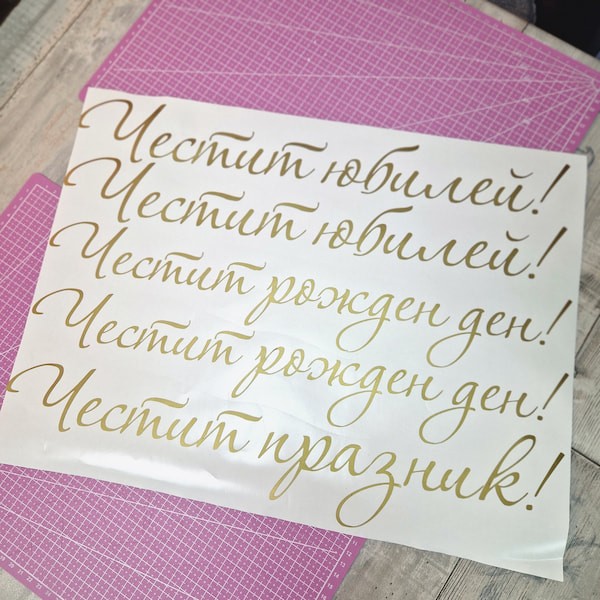 Честит юбилей!
Честит юбилей!
Честит рожден ден!
Честит рожден ден!
Честит празник!